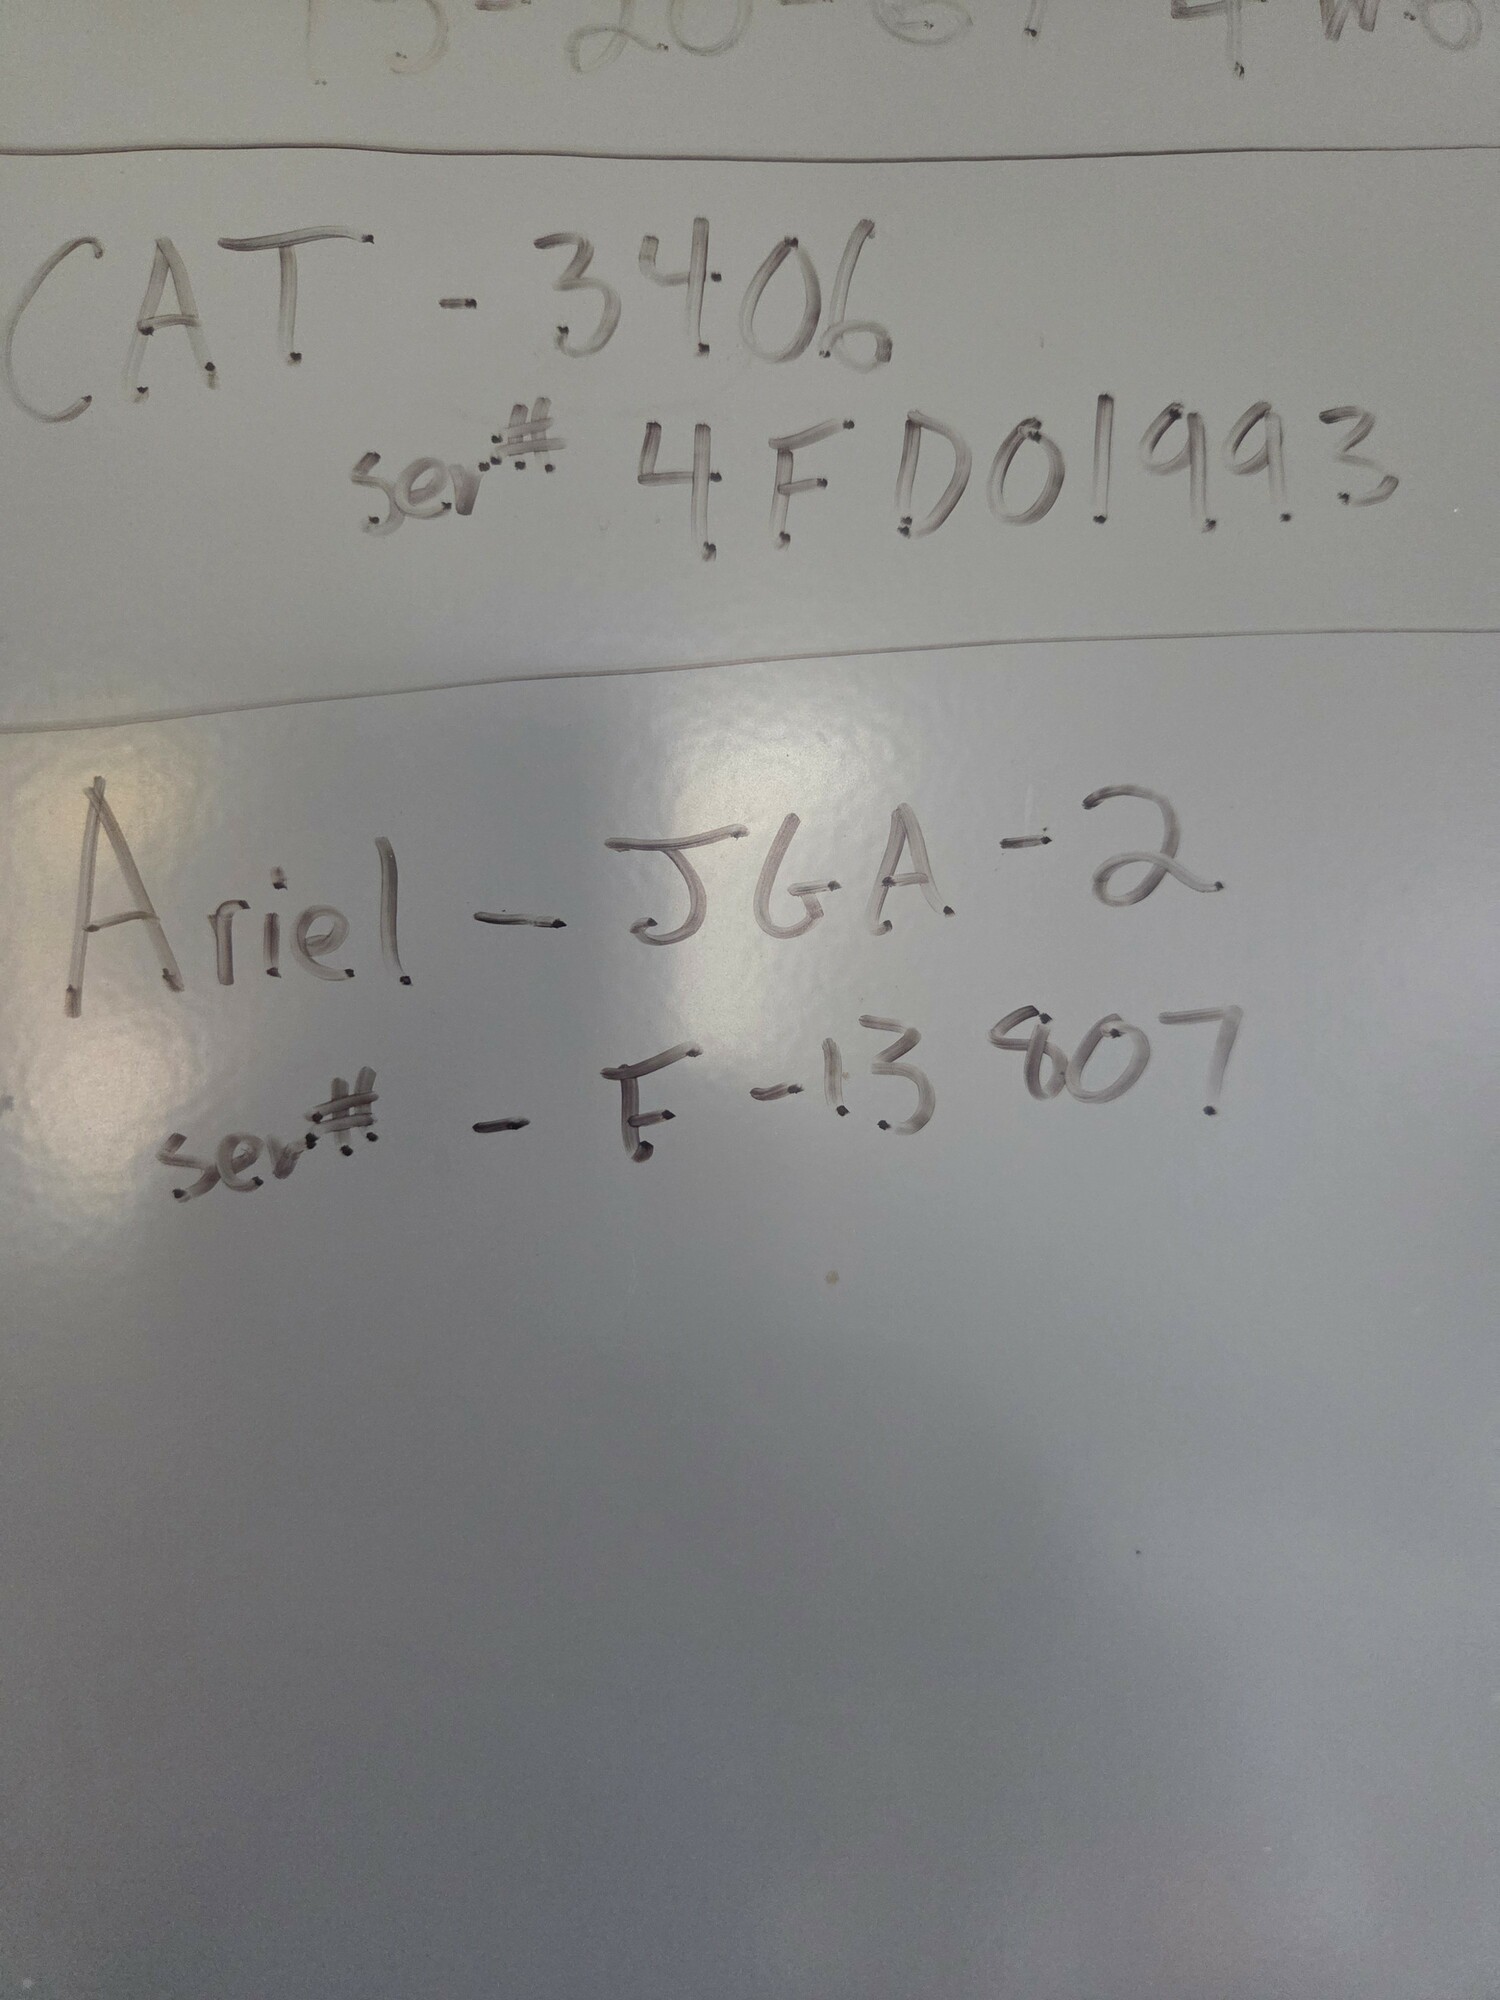 CAT - 3406
ser# 4FD01993
Ariel - JGA-2
ser# - F-13807